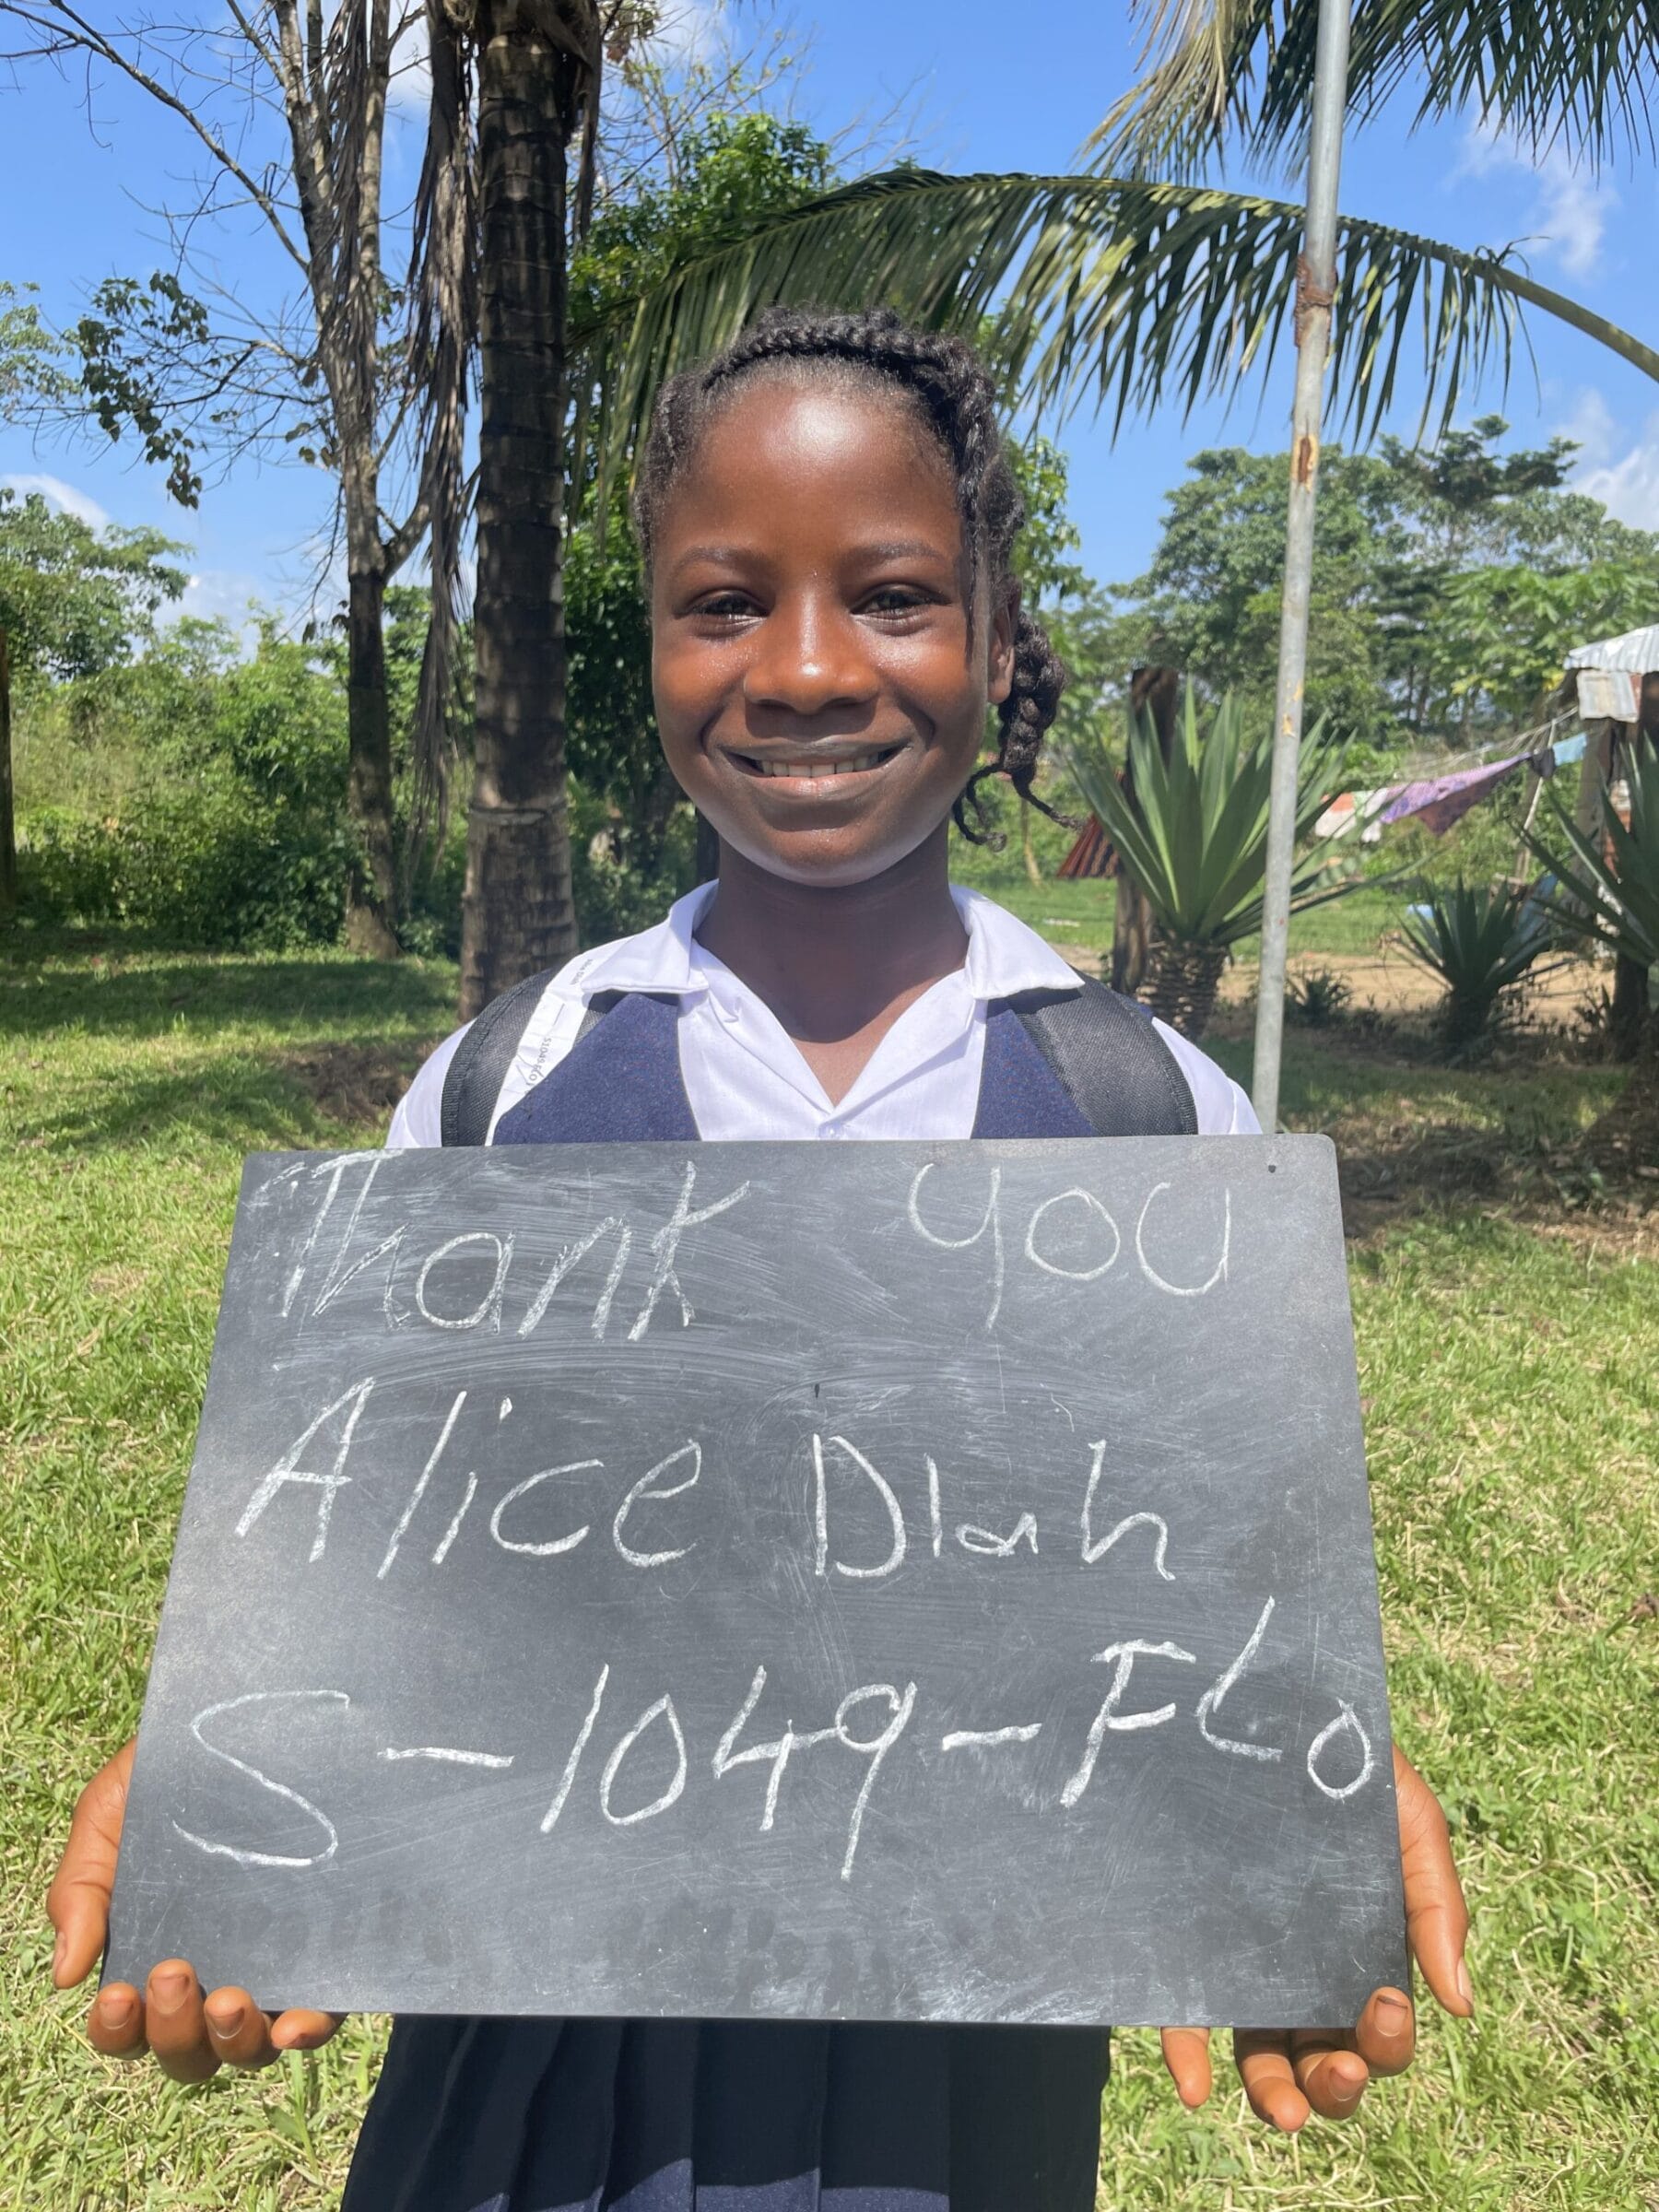 Thank you
Alice Diah
S-1049-FLo